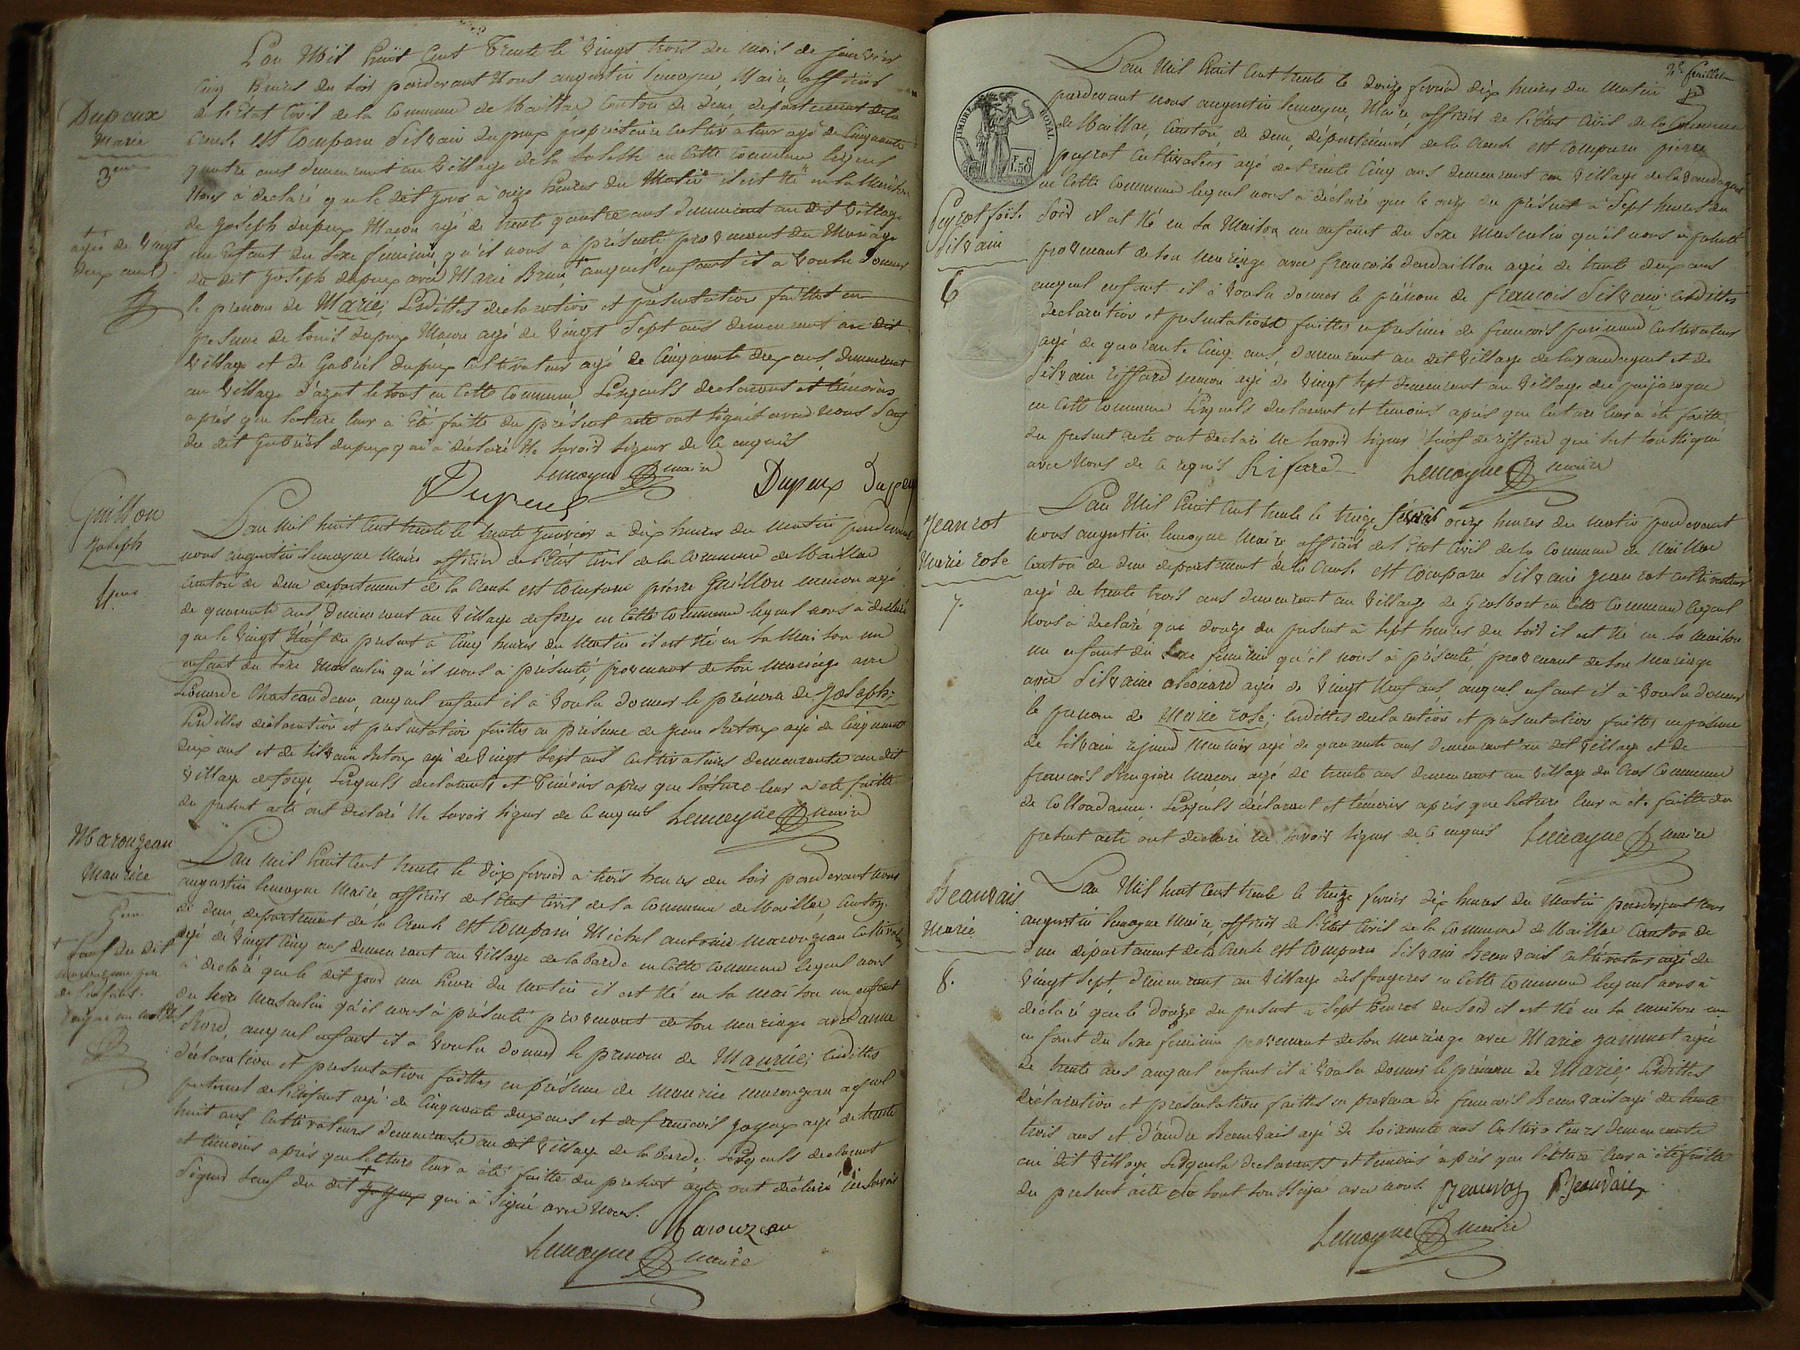 L'an Mil huit Cent Trente le Vingt trois du mois de janvier
Cinq heures du soir pardevant Nous augustin Lemoyne, Maire officier
de l'état Civil de la Commune de Maillac Canton de dun, département de la
Dupeux
Marie
3eme
Creuse est Comparu Silvain dupeux propriétaire cultivateur agé de Cinquante
quatre ans demeurant au Village de la en Cette Commune lequel
Nous à déclaré que le dit jour à onze heures du Matin il est Né en la Maison
de joseph dupeux Maçon agé de trente quatre ans demeurant au dit Village
un enfant du sexe féminin qu'il nous à présenté provenant du Mariage
+ agée de Vingt
deux ans
du dit joseph dupeux avec Marie Brun + auquel enfant il à Voulu donner
le prénom de Marie; Lesdittes déclaration et présentation faittes en
présence de Louis dupeux Macon agé de Vingt Sept ans demeurant au dit
Village et de Gabriel dupeux Cultivateur agé de Cinquante deux ans, demeurant
au Village d'azat le tout en Cette Commune Lesquels déclarant et témoins
après que lecture leur à été faitte du présent acte ont signé avec nous Sauf
du dit Gabriel dupeux qui à déclaré Ne Savoir Signer de Ce enquis
Lemoyne maire
Dupeux Dupeux Dupeux
Guillon
joseph
4eme
L'an mil huit Cent trente le trente janvier à dix heures du matin pardevant
nous augustin Lemoyne Maire officier de l'état Civil de la Commune de Maillac
Canton de dun département de la Creuse est Comparu pierre Guillon macon agé
de quarante ans demeurant au Village de forge en Cette Commune lequel nous à déclaré
que le Vingt Neuf du présent à Cinq heures du Matin il est Né en Sa Maison un
enfant du Sexe Masculin qu'il nous à présenté, provenant de Son Mariage avec
Léonarde Chateaudeau, auquel enfant il à Voulu donner le prénom de joseph;
Lesdittes déclaration et présentation faittes en présence de agé de Cinquante
deux ans et de Silvain agé de Vingt Sept ans Cultivateurs demeurants au dit
Village de forge Lesquels déclarant et Témoins après que lecture leur à été faitte
du présent acte ont déclaré Ne Savoir Signer de Ce enquis Lemoyne maire
Marouzeau
Maurice
5eme
L'an mil huit Cent trente le dix février à trois heures du Soir pardevant Nous
augustin Lemoyne Maire, officier de l'état Civil de la Commune de Maillac, Canton
de dun, département de la Creuse est Comparu Michel antoine marouzeau Cultivateur
agé de Vingt Cinq ans demeurant au Village de labarde en Cette Commune lequel nous
à déclaré que le dit jour une heure du matin il est Né en Sa Maison un enfant
+ Sauf du dit
marouzeau
du Sexe Masculin qu'il nous à présenté provenant de Son Mariage avec anne
auquel enfant il à Voulu donner le prénom de Maurice; lesdittes
déclaration et présentation faittes en présence de Maurice marouzeau ayeul
paternel de l'Enfant agé de Cinquante deux ans et de francois agé de trente
huit ans Cultivateurs demeurants au dit Village de labarde; Lesquels déclarant
et témoins après que lecture leur à été faitte du présent acte ont déclaré ne Savoir
Signer Sauf du dit + qui à Signé avec Nous.
Marouzeau
Lemoyne maire
2e feuillet
TIMBRE ROYAL
L'an Mil huit Cent trente le douze février dix heures du Matin
pardevant nous augustin Lemoyne, Maire officier de l'état Civil de la Commune
de Maillac, Canton de dun, département de la Creuse est Comparu pierre
peyrot Cultivateur agé de trente Cinq ans demeurant au Village de
en Cette Commune lequel nous à déclaré que le onze du présent à Sept heures du
Peyrot fois.
Silvain
6
Soir il est Né en Sa Maison un enfant du Sexe Masculin qu'il nous à présenté
provenant de Son Mariage avec francoise dardaillon agée de trente deux ans
auquel enfant il à Voulu donner le prénom de francois Silvain; lesdittes
déclaration et présentation faittes en présence de francois Cultivateur
agé de quarante Cinq ans, demeurant au dit Village de et de
Silvain Riffard macon agé de Vingt Sept demeurant au Village de
en Cette Commune Lesquels déclarant et témoins après que lecture leur à été faitte
du présent acte ont déclaré Ne Savoir Signer Sauf de riffard qui à Signé
avec Nous de Ce requis Rifard Lemoyne maire
Jeanrot
Marie rose
7.
L'an Mil huit Cent trente le treize février onze heures du matin pardevant
nous augustin Lemoyne Maire officier de l'état Civil de la Commune de Maillac
Canton de dun département de la Creuse est Comparu Silvain jeanrot Cultivateur
agé de trente trois ans demeurant au Village de en Cette Commune lequel
Nous à déclaré que douze du présent à Sept heures du Soir il est Né en Sa maison
un enfant du Sexe féminin qu'il nous à présenté, provenant de Son Mariage
avec Silvaine agée de Vingt Neuf ans, auquel enfant il à Voulu donner
le prénom de Marie rose; lesdittes déclaration et présentation faittes en présence
de Silvain agé de quarante ans demeurant au dit Village et de
francois macon agé de trente ans demeurant au Village du Commune
de Lesquels déclarant et témoins après que lecture leur à été faitte du
présent acte ont déclaré ne Savoir Signer de Ce enquis Lemoyne maire
Beauvais
Marie
8.
L'an Mil huit Cent trente le treize février dix heures du Matin pardevant nous
augustin Lemoyne Maire, officier de l'état Civil de la Commune de Maillac Canton de
dun département de la Creuse est Comparu Silvain Beauvais Cultivateur agé de
Vingt Sept, demeurant au Village des fougeres en Cette Commune lequel nous à
déclaré que le douze du présent à Sept heures du Soir il est Né en Sa maison un
enfant du Sexe féminin provenant de Son Mariage avec Marie agée
de trente ans auquel enfant il à Voulu donner le prénom de Marie; Lesdittes
déclaration et présentation faittes en présence de francois Beauvais agé de trente
trois ans et d'andré Beauvais agé de Soixante ans Cultivateurs demeurants
au dit Village Lesquels déclarants et témoins après que lecture leur à été faitte
du présent acte avec nous. Beauvais Beauvais
Lemoyne maire